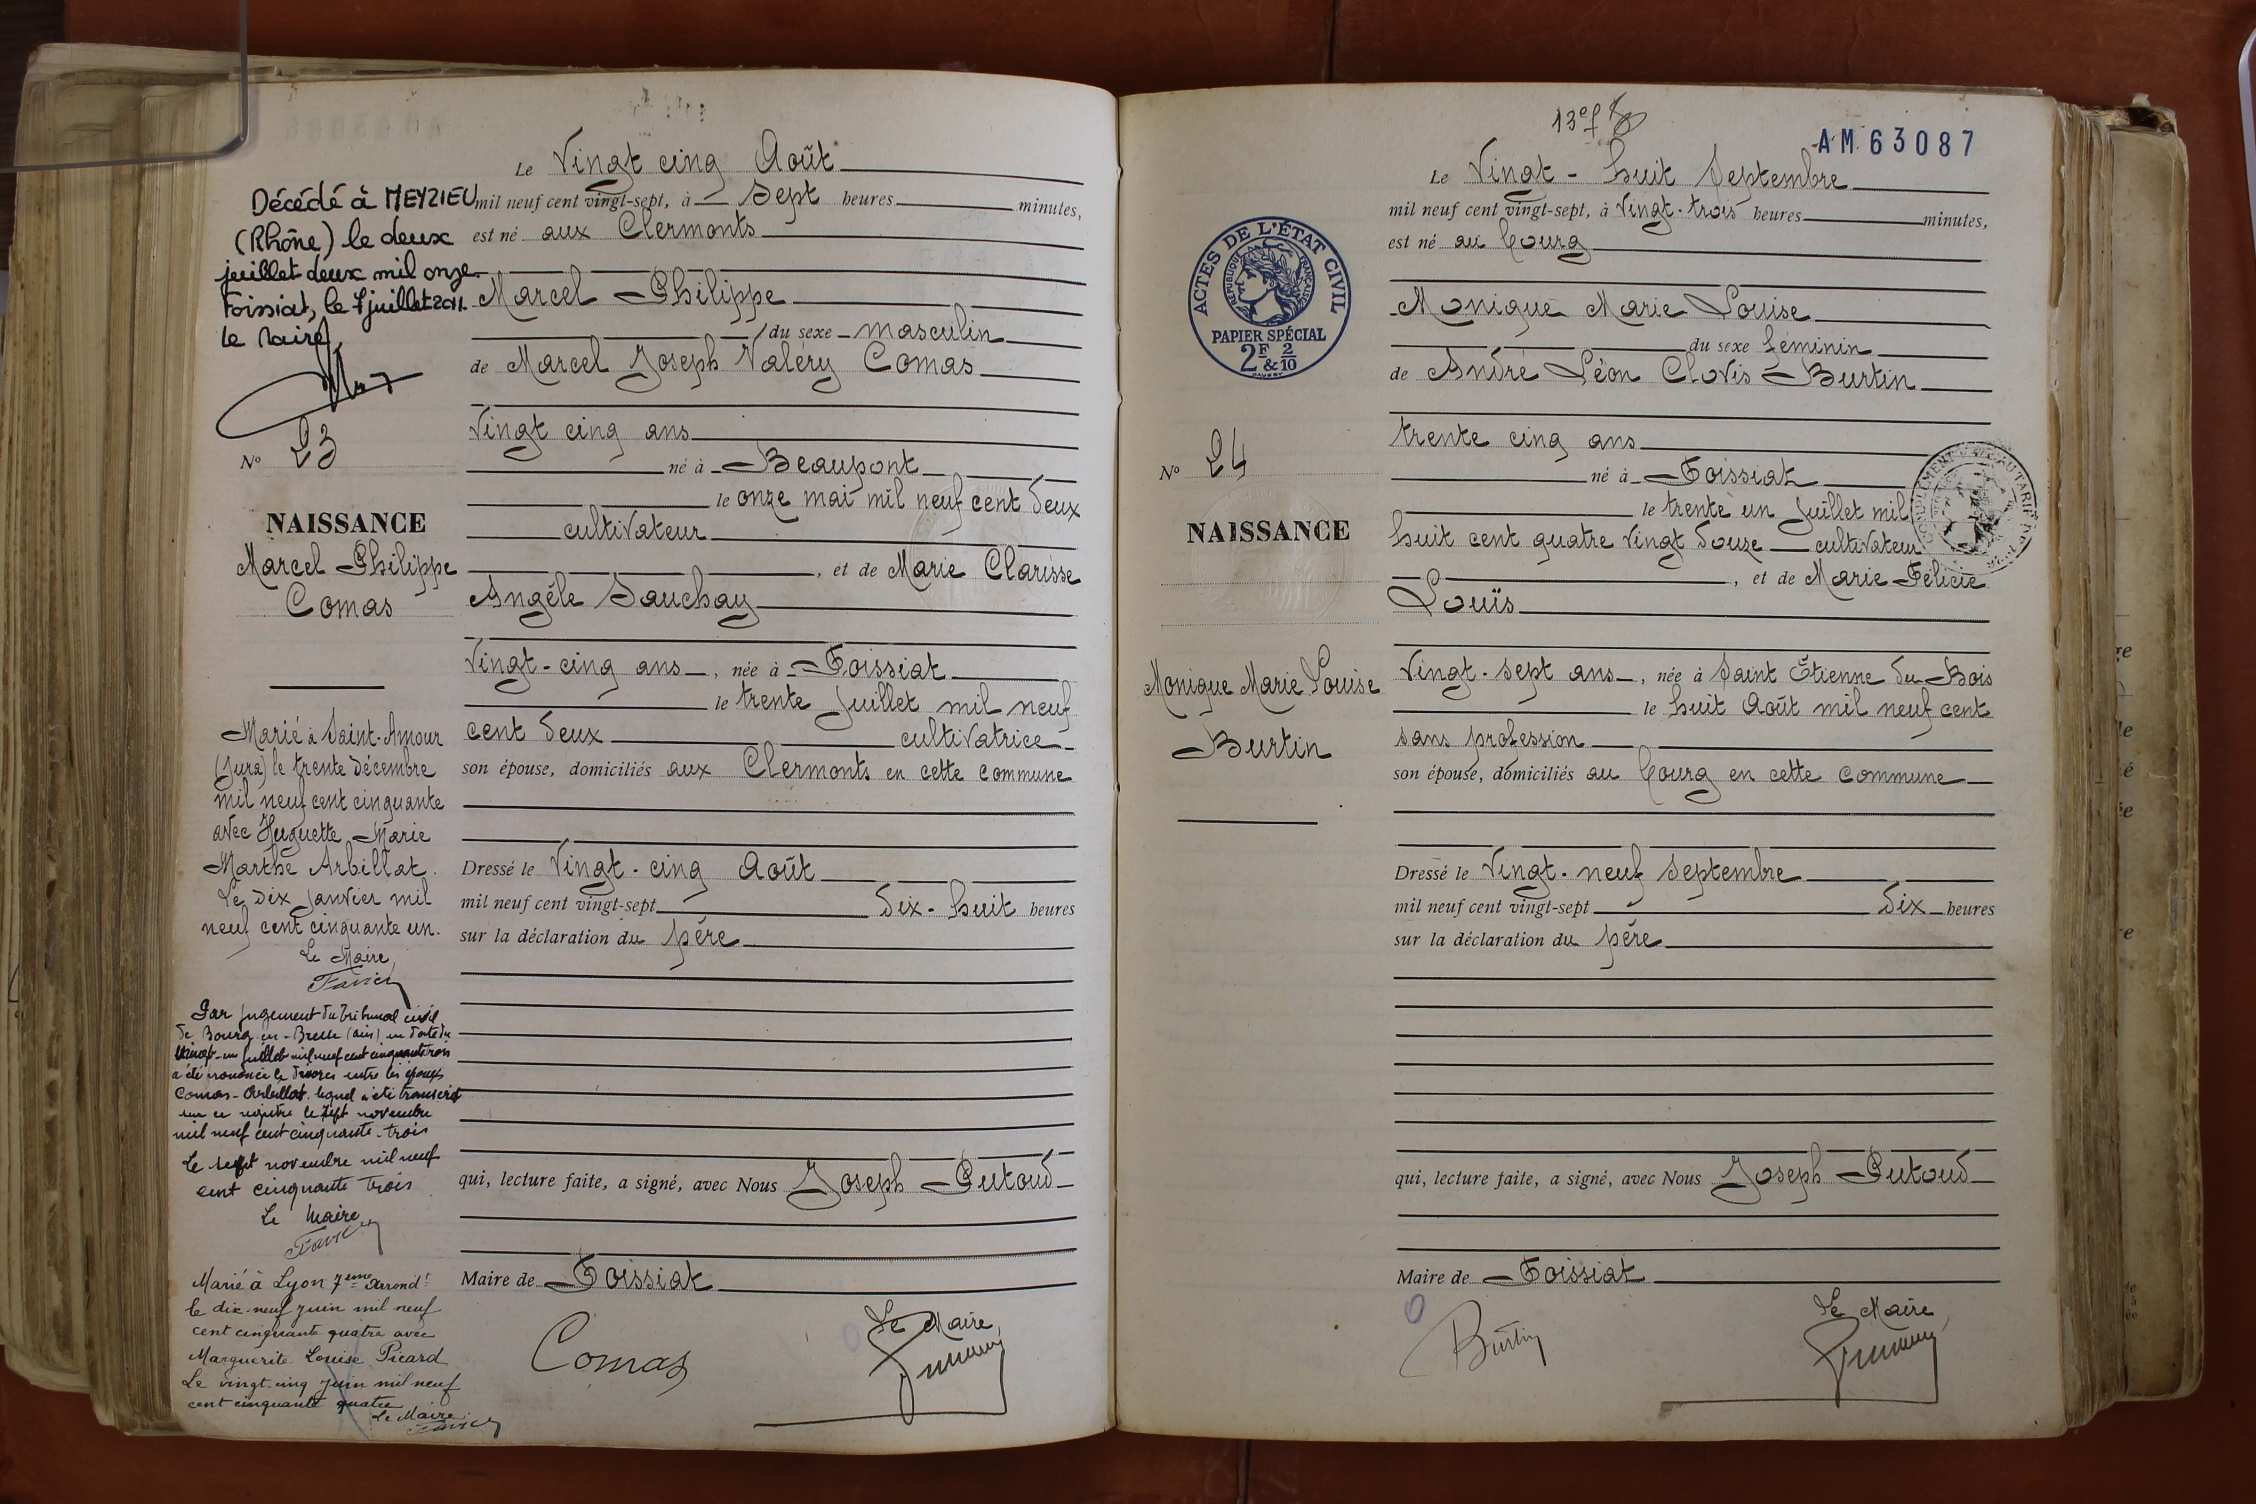 Le Vingt cinq Août
mil neuf cent vingt-sept, à Sept heures minutes,
est né aux Clermonts
Marcel Philippe
du sexe masculin
de Marcel Joseph Valéry Comas
Vingt cinq ans
né à Beaupont
le onze mai mil neuf cent deux
cultivateur
, et de Marie Clarisse
Angèle Sauchay
Vingt-cinq ans, née à Foissiat
le trente Juillet mil neuf
cent deux cultivatrice
son épouse, domiciliés aux Clermonts en cette commune
Dressé le Vingt-cinq Août
mil neuf cent vingt-sept dix-huit heures
sur la déclaration du père
qui, lecture faite, a signé, avec Nous Joseph Putoud
Maire de Foissiat
Comas
Le Maire,
Décédé à MEYZIEU
(Rhône) le deux
juillet deux mil onze.
Foissiat, le 7 juillet 2011.
Le Maire,
N° 23
NAISSANCE
Marcel Philippe
Comas
Marié à Saint-Amour
(Jura) le trente décembre
mil neuf cent cinquante
avec Huguette Marie
Marthe Arbillat.
Le dix Janvier mil
neuf cent cinquante un.
Le Maire,
Favier
Par jugement du Tribunal civil
de Bourg-en-Bresse (Ain) en date du
vingt-un juillet mil neuf cent cinquante trois
a été prononcé le divorce entre les époux
Comas-Arbillat lequel a été transcrit
sur ce registre le sept novembre
mil neuf cent cinquante-trois
Le sept novembre mil neuf
cent cinquante trois
Le Maire
Favier
Marié à Lyon 7eme arrondt
le dix-neuf juin mil neuf
cent cinquante quatre avec
Marguerite Louise Picard
Le vingt-cinq juin mil neuf
cent cinquante quatre
Le Maire,
Favier
13e f
AM 63087
Le Vingt-huit Septembre
mil neuf cent vingt-sept, à Vingt-trois heures minutes,
est né au Courg
Monique Marie Louise
du sexe féminin
de André Léon Clovis Burtin
trente cinq ans
né à Foissiat
le trente un Juillet mil
huit cent quatre vingt douze cultivateur
, et de Marie Félicie
Louïs
Vingt-sept ans, née à Saint Étienne du Bois
le huit Août mil neuf cent
sans profession
son épouse, domiciliés au Courg en cette commune
Dressé le Vingt-neuf Septembre
mil neuf cent vingt-sept dix heures
sur la déclaration du père
qui, lecture faite, a signé, avec Nous Joseph Putoud
Maire de Foissiat
Burtin
Le Maire
ACTES DE L'ÉTAT CIVIL
RÉPUBLIQUE FRANÇAISE
PAPIER SPÉCIAL
2F & 2/10
N° 24
NAISSANCE
Monique Marie Louise
Burtin